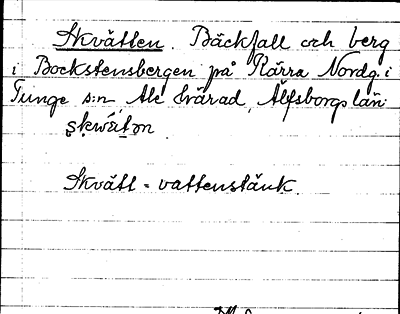 Skvätten. Bäckfall och berg
i Bockstensbergen på Kärra Nordg. i
Tunge s:n, Ale härad, Älfsborgs län
skwätən
Skvätt = vattenstänk.